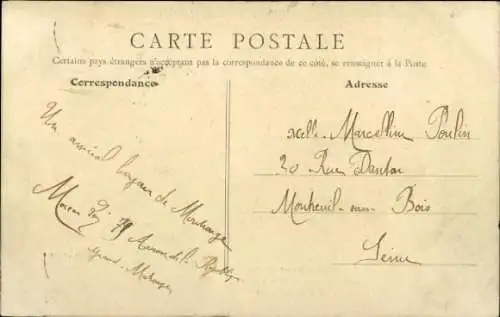 CARTE POSTALE
Certains pays étrangers n'acceptant pas la correspondance de ce côté, se renseigner à la Poste
Correspondance
Adresse
Un amical bonjour de Montrouge
77 Avenue de la
Grand-Montrouge
Melle Marcelline Poulin
30 Rue Danton
Montreuil-sous-Bois
Seine